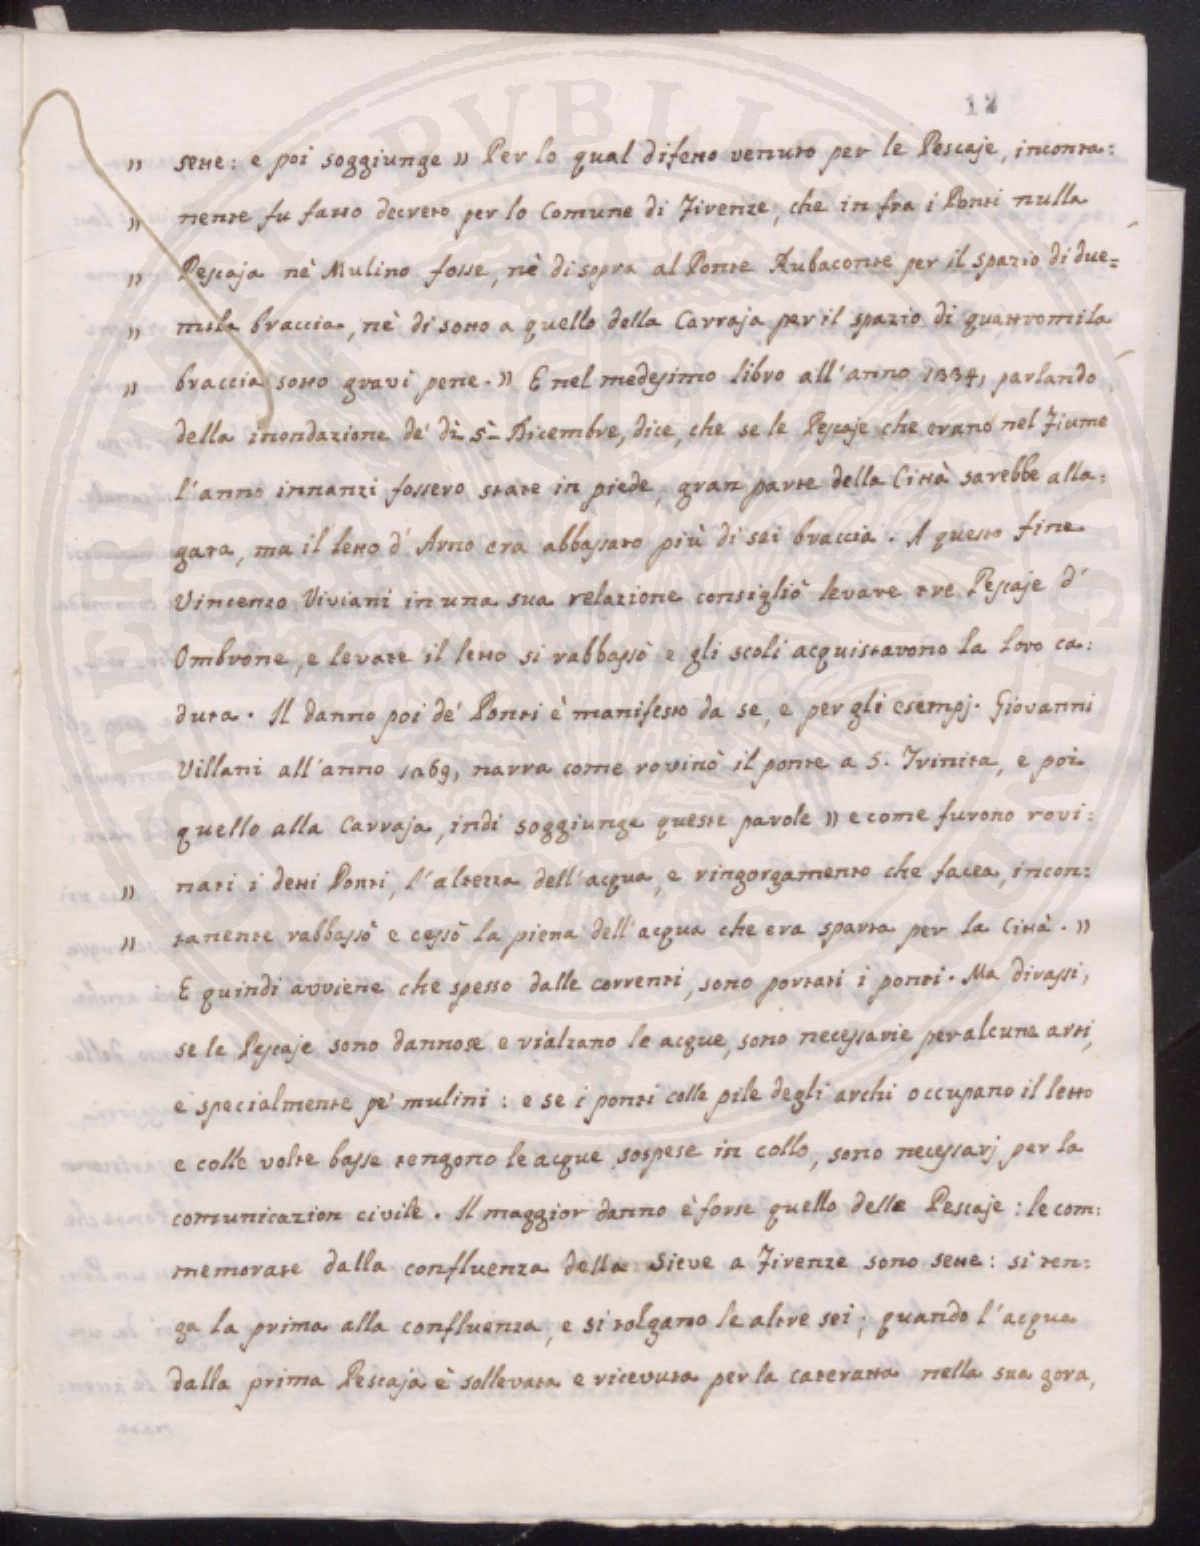 12
„ sette: e poi soggiunge „ Per lo qual difetto venuto per le Pescaje, inconta:
„ nente fu fatto decreto per lo Comune di Firenze, che in fra i Ponti nulla
„ Pescaja nè Mulino fosse, nè di sopra al Ponte Rubaconte per il spazio di due=
„ mila braccia, nè di sotto a quello della Carraja per il spazio di quattromila
„ braccia sotto gravi pene. „ E nel medesimo libro all'anno 1334, parlando
della inondazione de' dì 5 Dicembre, dice, che se le Pescaje che erano nel Fiume
l'anno innanzi fossero state in piede, gran parte della Città sarebbe alla:
gata, ma il letto d'Arno era abbassato più di sei braccia. A questo fine
Vincenzo Viviani in una sua relazione consigliò levare tre Pescaje d'
Ombrone, e levate il letto si rabbassò e gli scoli acquistavono la loro ca:
duta. Il danno poi de' Ponti è manifesto da se, e per gli esempj. Giovanni
Villani all'anno 1269, narra come rovinò il ponte a S. Trinita, e poi
quello alla Carraja, indi soggiunge queste parole „ e come furono rovi:
„ nati i detti Ponti, l'altezza dell'acqua, e ringorgamento che facea, incon:
„ tanente rabbassò e cessò la piena dell'acqua che era sparta per la Città. „
E quindi avviene che spesso dalle correnti, sono portati i ponti. Ma dirassi,
se le Pescaje sono dannose e rialzano le acque, sono necessarie per alcune arti,
e specialmente pe' mulini: e se i ponti colle pile degli archi occupano il letto
e colle volte basse tengono le acque sospese in collo, sono necessarj per la
comunicazion civile. Il maggior danno è forse quello delle Pescaje: le com:
memorate dalla confluenza della Sieve a Firenze sono sette: si ten:
ga la prima alla confluenza, e si tolgano le altre sei; quando l'acqua
dalla prima Pescaja è sollevata e ricevuta per la cateratta nella sua gora,